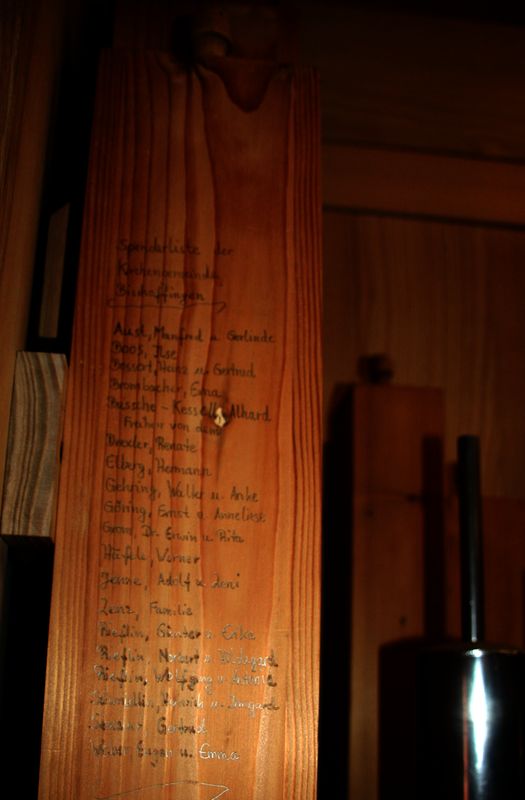 Spenderliste der
Kirchengemeinde
Bischoffingen
Aust, Manfred u Gerlinde
Boos, Ilse
Bossert, Heinz u. Gertrud
Brombacher, Erna
Bussche - Kessell, Alhard
Freiherr von dem
Drexler, Renate
Elberg, Hermann
Gehring, Walter u. Anke
Göring, Ernst u. Anneliese
Dr. Erwin u Rita
Häfele, Werner
Jenne, Adolf u. Leni
Lenz, Familie
Rieflin, Günter u Erika
Rieflin, Norbert u Hildegard
Rieflin, Wolfgang u.
u. Irmgard
Gertrud
u. Emma